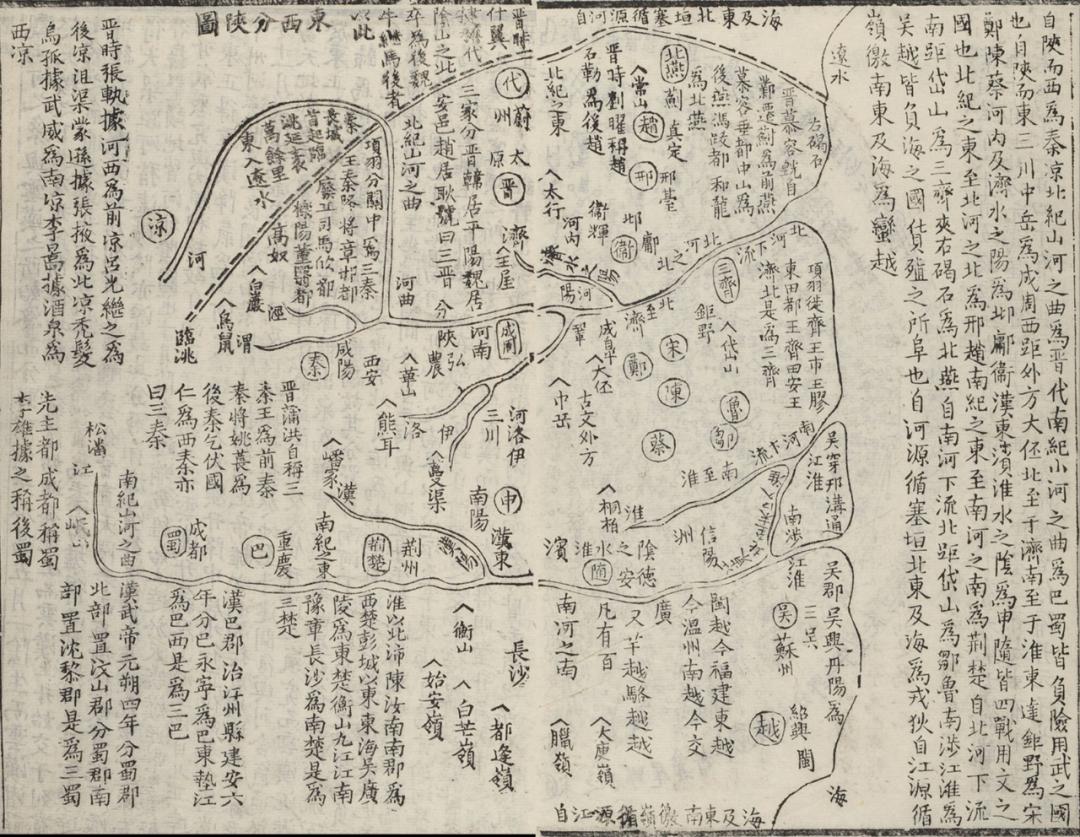 自陝而西爲秦凉北紀山河之曲爲晋代南紀小河之曲爲巴蜀皆負險用武之國
也自陝而東三川中岳爲成周西距外方大伾北至于濟南至于淮東逹鉅野爲宋
鄭陳蔡河内及濟水之陽爲邶鄘衛漢東濱淮水之陰爲申隨皆四戰用文之
國也北紀之東至北河之北爲邢趙南紀之東至南河之南爲荆楚自北河下流
南距岱山爲三齊夾右碣石爲北燕自南河下流北距岱山爲鄒魯南渉江淮爲
吳越皆負海之國貨殖之所阜也自河源循塞垣北東及海爲戎狄自江源循
嶺徼南東及海爲蠻越
海及東北垣塞循源河自
遼水
右碣石
晋慕容皝自
鄴遷薊爲前燕
慕容垂都中山爲
後燕馮跋都和龍
爲北燕
北燕
薊
真定
常山
趙
邢
邢臺
晋時劉曜稱趙
石勒爲後趙
北紀之東
太行
河内
衛輝
邶
鄘
衛
北河之北
北河下流
項羽徙齊王巿王膠
東田都王齊田安王
濟北是爲三齊
三齊
鉅野
岱山
北至濟
宋
鄭
陳
魯
鄒
蔡
成臯
大伾
鞏
中岳
古文外方
河陽
南河下流
南至淮
淮
桐柏
信陽
吳穿邗溝通
江淮
南渉江淮
濱淮水之陰
隨
德安
吳郡吳興丹陽爲
三吳
吳
蘇州
越
紹興
閩
海
閩越今福建東越
今温州南越今交
廣
又羊越駱越越
凡有百
南河之南
大庾嶺
臘嶺
海及東南徼嶺循源江自
東西分陝圖
代
蔚州
太原
晋
濟
王屋
三家分晋韓居平陽魏居
安邑趙居耿號曰三晋
北紀山河之曲
項羽分關中爲三秦
王秦略將章邯都
廢丘司馬欣都
櫟陽董翳都
高奴
秦長城
首起臨
洮延袤
萬餘里
東入遼水
凉
河
臨洮
晋時張軌據河西爲前凉吕光繼之爲
後凉沮渠蒙遜據張掖爲北凉禿髮
烏孤據武威爲南凉李暠據酒泉爲
西凉
白巖
涇
鳥鼠
渭
秦
咸陽
西安
河曲
分陝
弘農
河南
成周
華山
熊耳
洛
伊
三川
河洛伊
蔓渠
晋蒲洪自稱三
秦王爲前秦
秦將姚萇爲
後秦乞伏國
仁爲西秦亦
曰三秦
嶓冢
漢
南紀之東
荆楚
荆州
南陽
申
漢東
漢陽
松潘
江
岷山
南紀山河之曲
成都
蜀
重慶
巴
先主都成都稱蜀
李雄據之稱後蜀
漢武帝元朔四年分蜀郡
北部置汶山郡分蜀郡南
部置沈黎郡是爲三蜀
漢巴郡治江州縣建安六
年分巴永寧爲巴東墊江
爲巴西是爲三巴
淮以北沛陳汝南南郡爲
西楚彭城以東東海吳廣
陵爲東楚衡山九江江南
豫章長沙爲南楚是爲
三楚
衡山
始安嶺
白芒嶺
長沙
都逢嶺